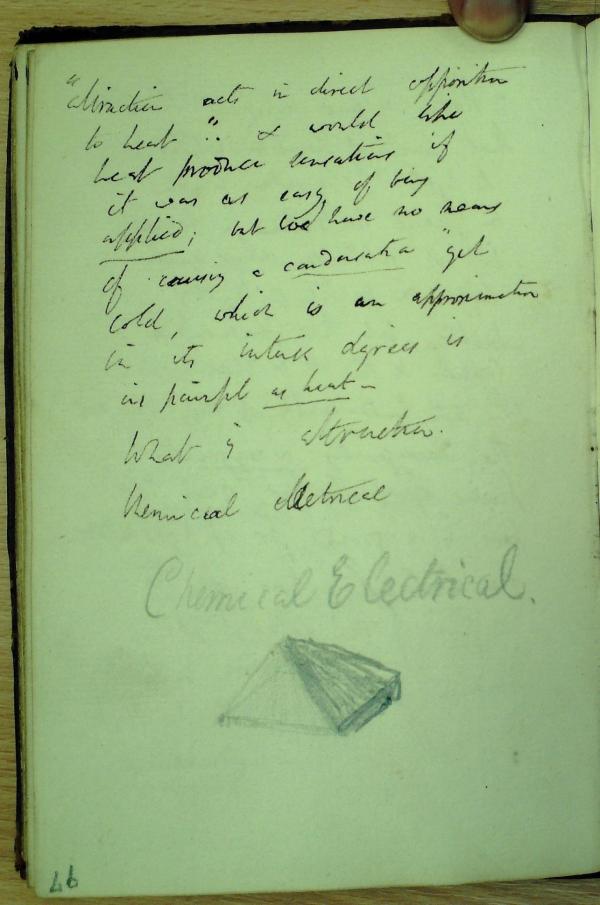 "attraction acts in direct opposition
to heat" & would like
heat produce sensations if
it was as easy of being
applied; but we have no means
of causing a condensation "yet
cold, which is an approximation
in its intense degrees is
as painful as heat –
What is attraction.
Chemical electrical
Chemical Electrical.
46